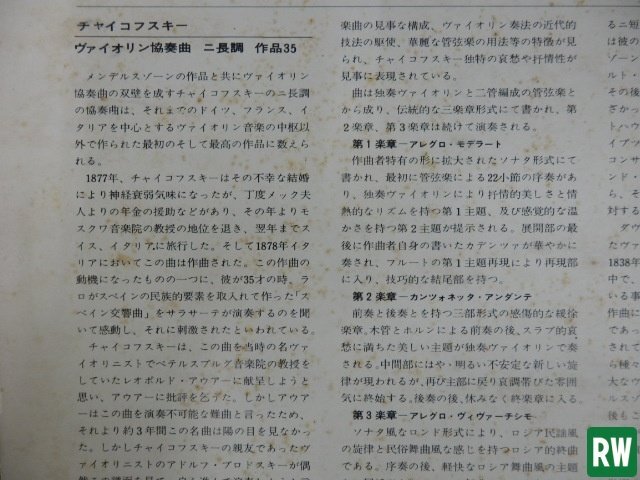 チャイコフスキー
ヴァイオリン協奏曲 ニ長調 作品35
メンデルスゾーンの作品と共にヴァイオリン
協奏曲の双璧を成すチャイコフスキーのニ長調
の協奏曲は、それまでのドイツ、フランス、イ
タリアを中心とするヴァイオリン音楽の中枢以
外で作られた最初のそして最高の作品に数えら
れる。
1877年、チャイコフスキーはその不幸な結婚
により神経衰弱気味になったが、丁度メック夫
人よりの年金の援助などがあり、その年よりモ
スクワ音楽院の教授の地位を退き、翌年までス
イス、イタリアに旅行した。そして1878年イタ
リアにおいてこの曲は作曲された。この作曲の
動機になったものの一つに、彼が35才の時、ラ
ロがスペインの民族的要素を取入れて作った「ス
ペイン交響曲」をサラサーテが演奏するのを聞
いて感動し、それに刺激されたといわれている。
チャイコフスキーは、この曲を当時の名ヴァ
イオリニストでペテルスブルグ音楽院の教授を
していたレオポルド・アウアーに献呈しようと
思い、アウアーに批評を乞うた。しかしアウア
ーはこの曲を演奏不可能な難曲と言ったため、
それより約3年間この名曲は陽の目を見なかっ
た。しかしチャイコフスキーの親友であったヴ
ァイオリニストのアドルフ・ブロドスキーが偶
楽曲の見事な構成、ヴァイオリン奏法の近代的
技法の駆使、華麗な管弦楽の用法等の特徴が見
られ、チャイコフスキー独特の哀愁や抒情性が
見事に表現されている。
曲は独奏ヴァイオリンと二管編成の管弦楽と
から成り、伝統的な三楽章形式にて書かれ、第
2楽章、第3楽章は続けて演奏される。
第1楽章－アレグロ・モデラート
作曲者特有の形に拡大されたソナタ形式にて
書かれ、最初に管弦楽による22小節の序奏があ
り、独奏ヴァイオリンにより抒情的美しさと情
熱的なリズムを持つ第1主題、及び感覚的な温
かさを持つ第2主題が提示される。展開部の最
後に作曲者自身の書いたカデンツァが華やかに
奏され、フルートの第1主題再現により再現部
に入り、技巧的な結尾部を持つ。
第2楽章－カンツォネッタ・アンダンテ
前奏と後奏とを持つ三部形式の感傷的な緩徐
楽章。木管とホルンによる前奏の後、スラブ的哀
愁に満ちた美しい主題が独奏ヴァイオリンで奏
される。中間部にはや、明るい不安定な新しい旋
律が現われるが、再び主部に戻り哀調帯びた雰囲
気に終始する。後奏の後、休みなく終楽章に入る。
第3楽章－アレグロ・ヴィヴァーチシモ
ソナタ風なロンド形式により、ロシア民謡風
の旋律と民俗舞曲風な感じを持つロシア的終曲
である。序奏の後、軽快なロシア舞曲風の主題
RW